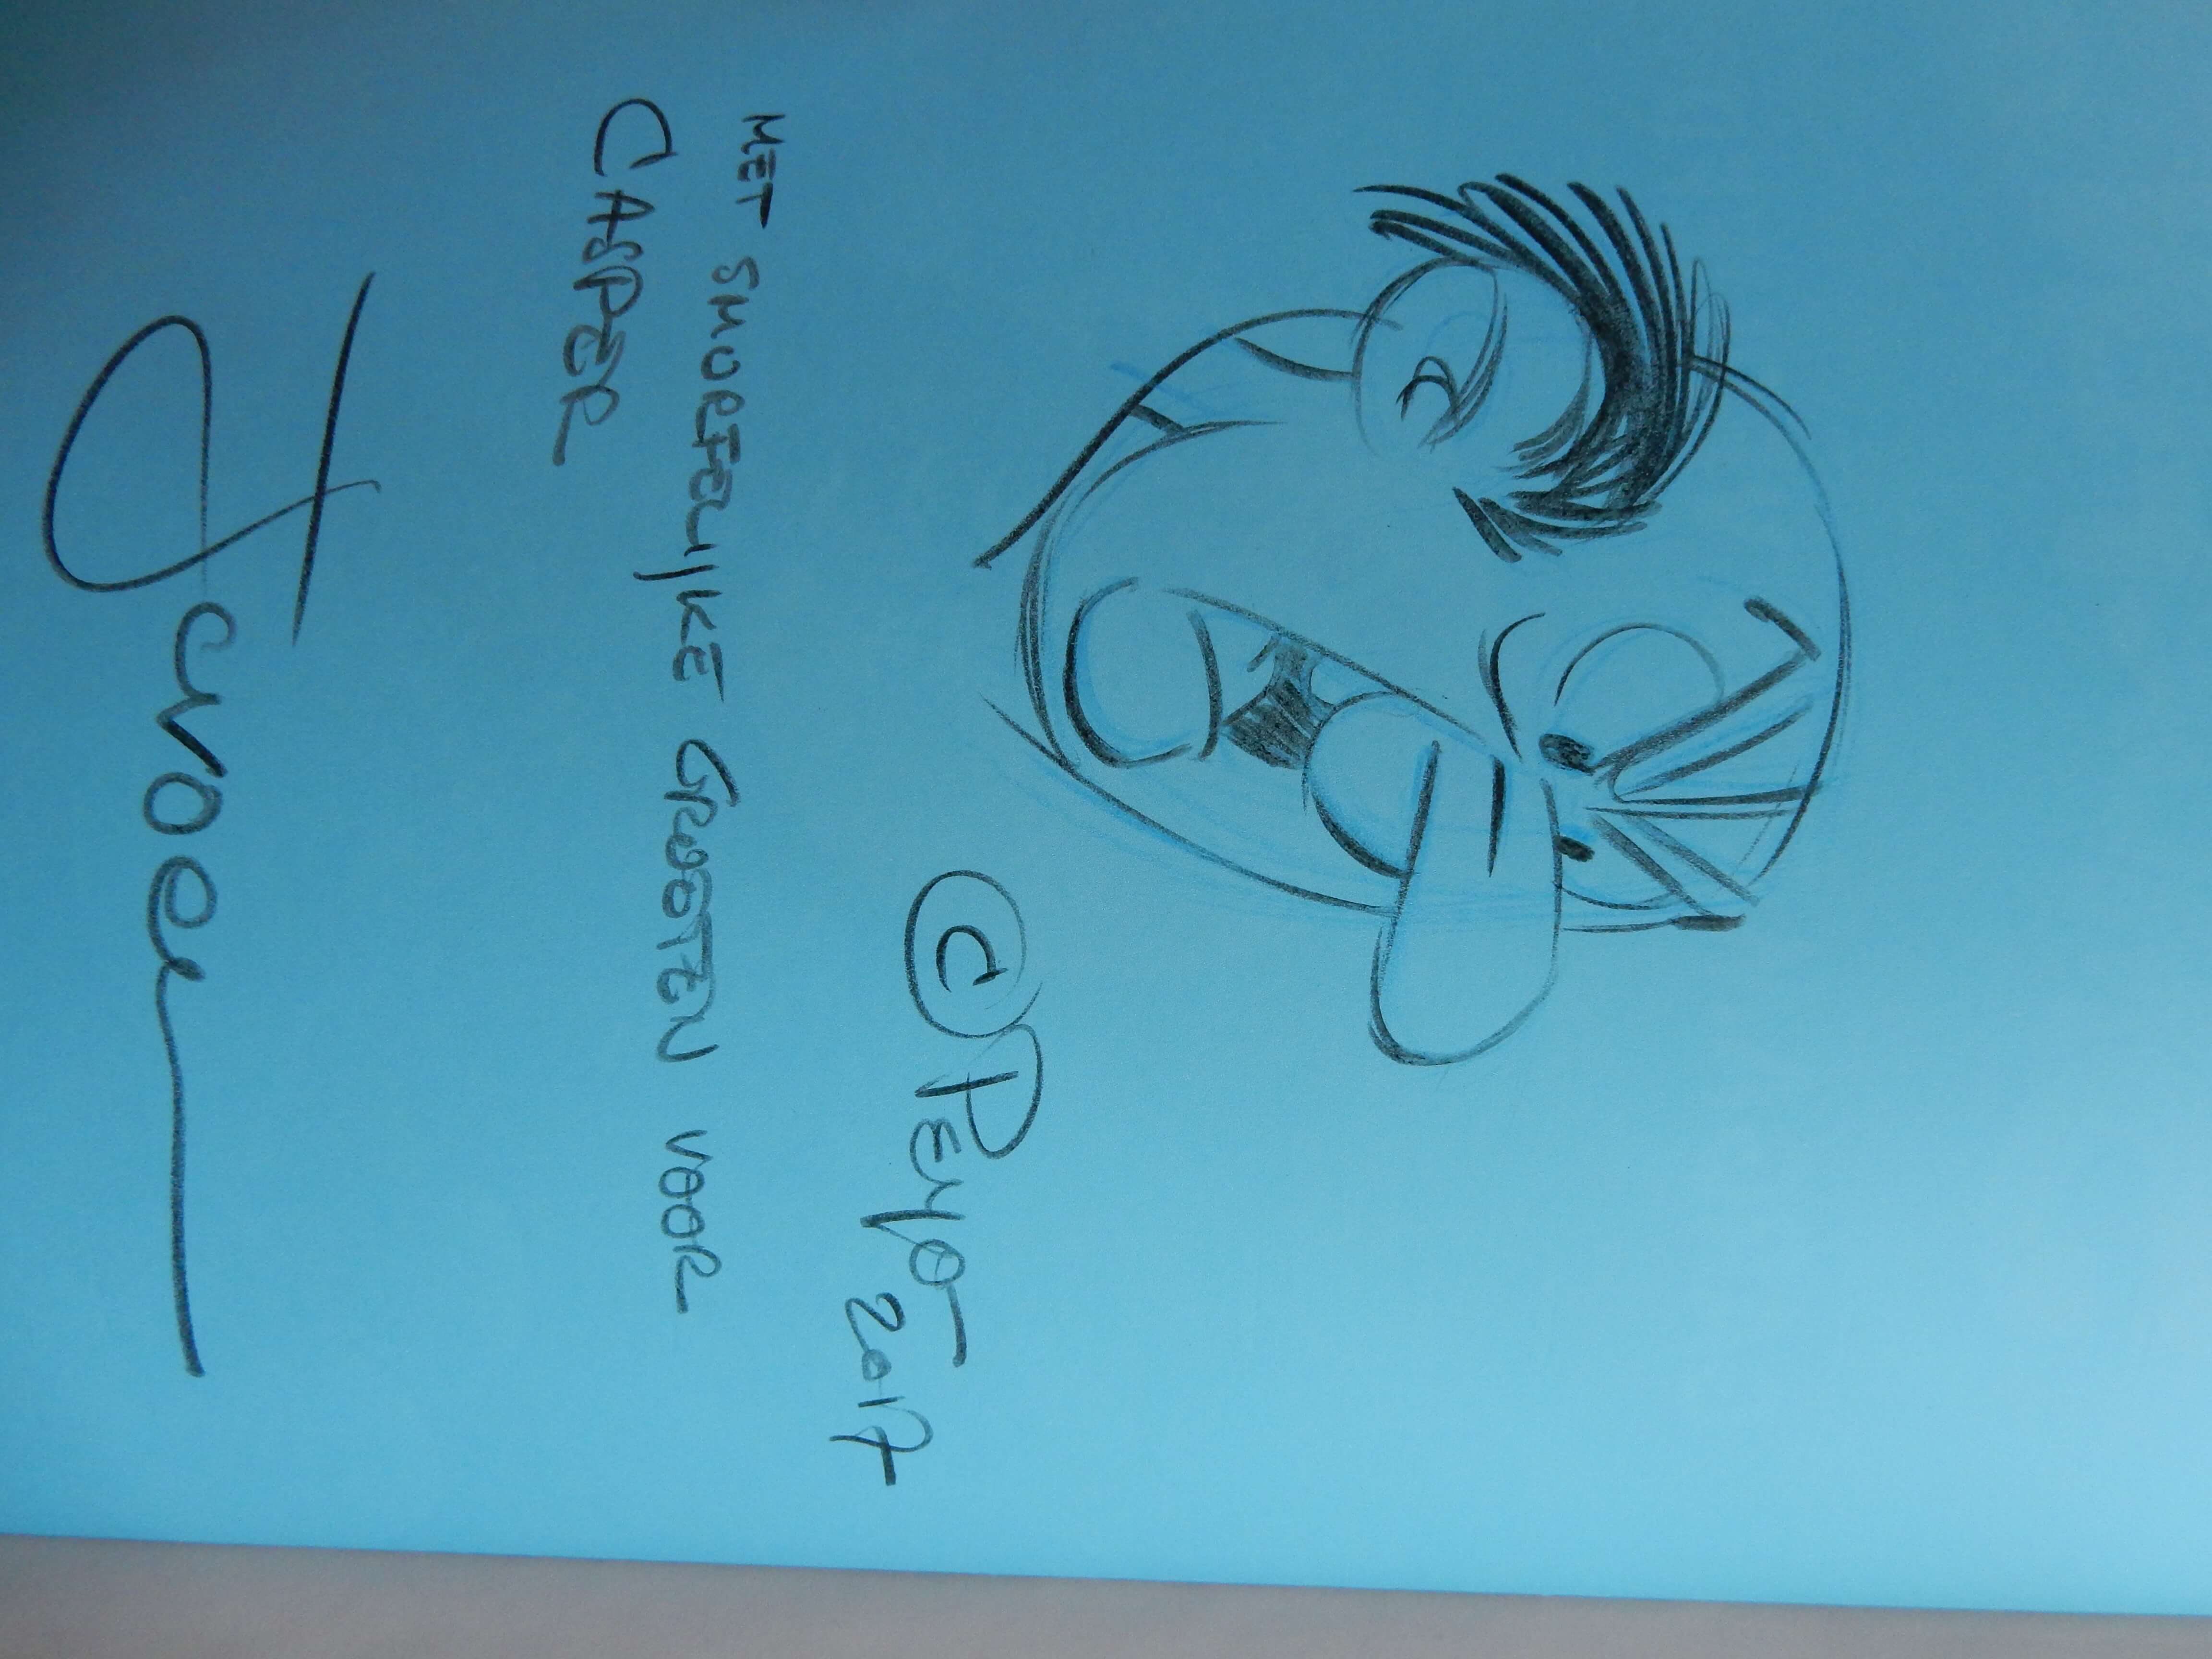 © Peyo
2017
MET SMURFELIJKE GROETEN VOOR
CASPER
Jeroen